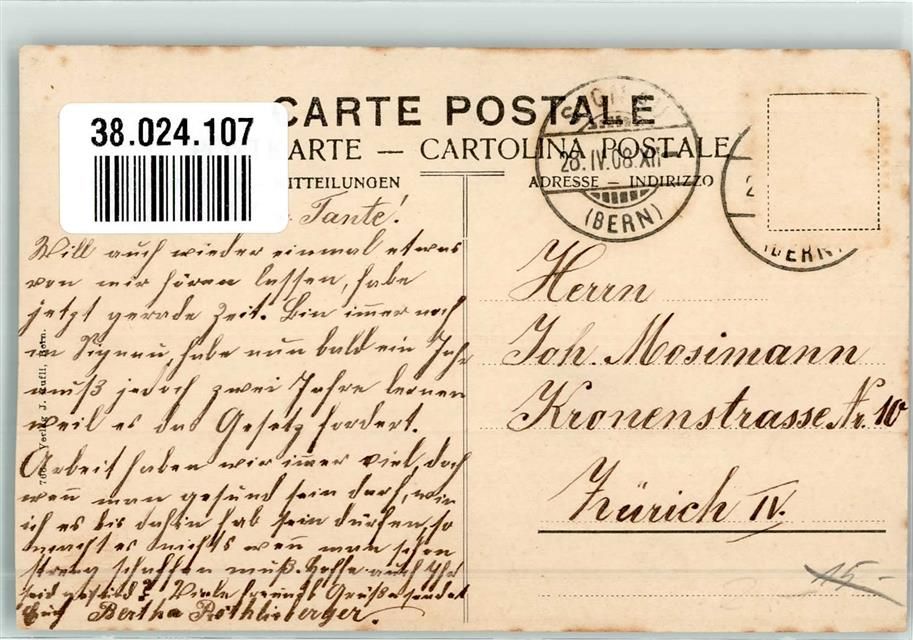 38.024.107
CARTE POSTALE
KARTE — CARTOLINA POSTALE
MITTEILUNGEN
ADRESSE — INDIRIZZO
28.IV.08.XII
(BERN)
(BERN)
Tante!
Will auch wieder einmal etwas
von mir hören lassen, habe
jetzt gerade Zeit. Bin immer noch
in Signau, habe nun bald ein Jahr
muß jedoch zwei Jahre lernen
weil es das Gesetz fordert.
Arbeit haben wir immer viel, doch
wenn man gesund sein darf, wie
ich es bis dahin hab sein dürfen, so
macht es nichts wenn man schon
streng schaffen muß. Hoffe auch Ihr
seid gesund? Viele freundl. Grüße sendet
Euch Bertha Röthlisberger.
Verlag J. Bern.
Herrn
Joh. Mosimann
Kronenstrasse Nr. 10
Zürich IV.
15.-